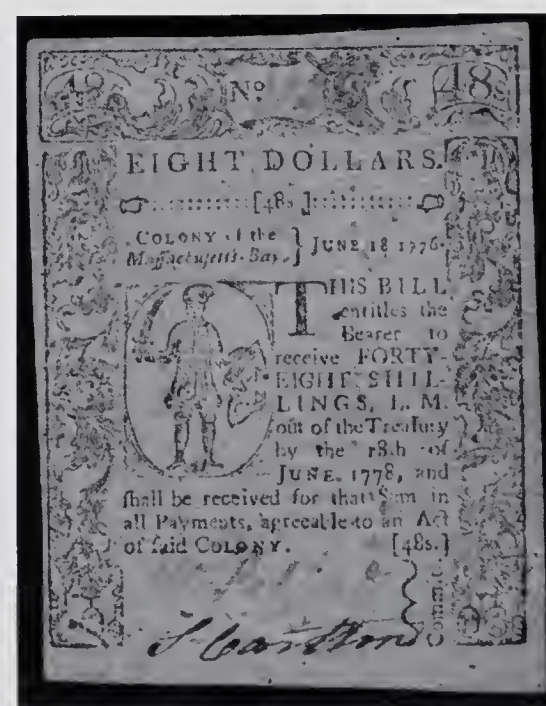 48 No. 48
EIGHT DOLLARS.
[48s.]
COLONY of the } JUNE 18 1776.
Massachusetts-Bay.
THIS BILL
entitles the
Bearer to
receive FORTY-
EIGHT SHIL-
LINGS, L. M.
out of the Treasury
by the 18th of
JUNE, 1778, and
shall be received for that Sum in
all Payments, agreeable to an Act
of said COLONY. [48s.]
Commit.